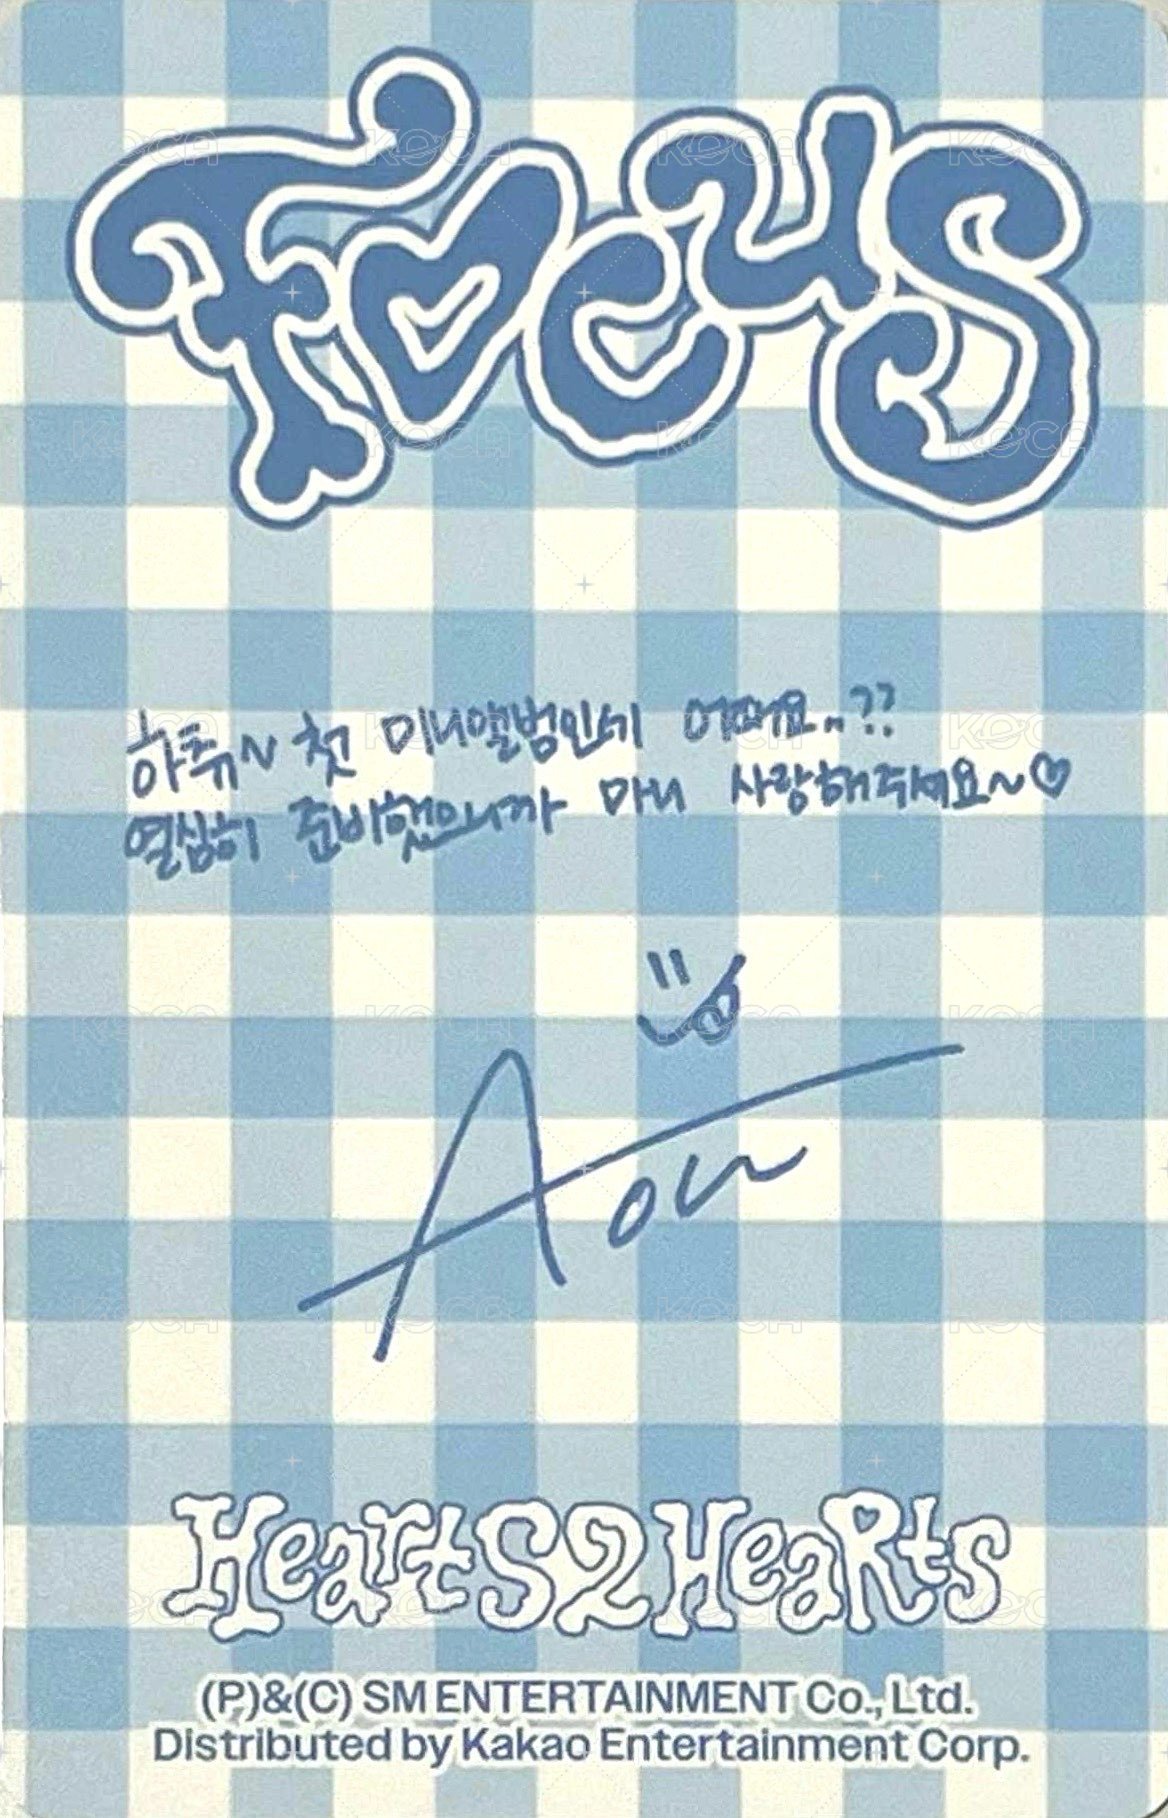 Focus
하츄~ 첫 미니앨범인데 어때요..??
열심히 준비했으니까 마니 사랑해주세요~♡
A
Hearts2Hearts
(P)&(C) SM ENTERTAINMENT Co., Ltd.
Distributed by Kakao Entertainment Corp.
KOCA